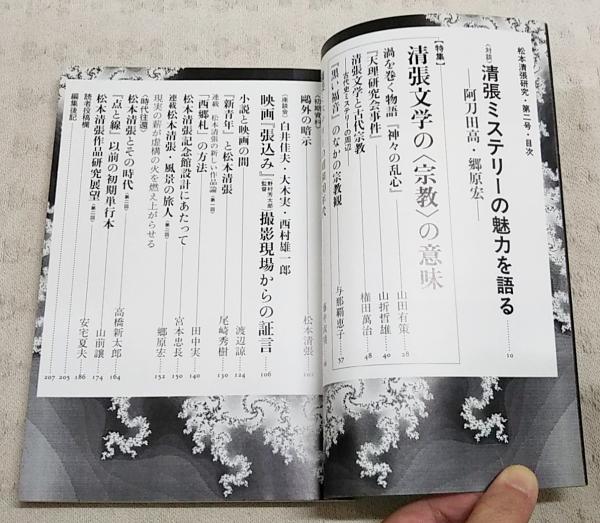 松本清張研究・第二号・目次
〈対談〉清張ミステリーの魅力を語る
——阿刀田高・郷原宏——
10
【特集】
清張文学の〈宗教〉の意味
渦を巻く物語『神々の乱心』
山田有策
28
清張文学と古代宗教
古代史ミステリーの周辺
山折哲雄
40
『天理研究会事件』
権田萬治
48
『黒い福音』のなかの宗教観
与那覇恵子
57
〈初期資料〉
鷗外の暗示
松本清張
102
〈座談会〉白井佳夫・大木実・西村雄一郎
映画『張込み』野村芳太郎監督撮影現場からの証言
106
小説と映画の間
渡辺諒
124
『新青年』と松本清張
尾崎秀樹
130
連載 松本清張の新しい作品論〈第一回〉
『西郷札』の方法
田中実
140
松本清張記念館設計にあたって
宮本忠長
150
連載 松本清張・風景の旅人〈第二回〉
現実の薪が虚構の火を燃え上がらせる
郷原宏
152
〈時代往還〉
松本清張とその時代〈第二回〉
高橋新太郎
164
『点と線』以前の初期単行本
山前譲
174
松本清張作品研究展望〈第二回〉
安宅夏夫
186
読者投稿欄
205
編集後記
207